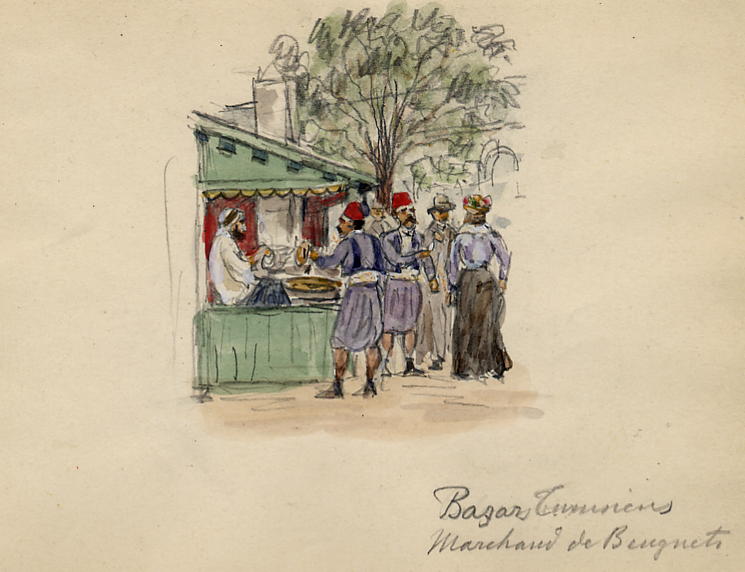 Bazars Tunisiens
Marchand de Beugnets